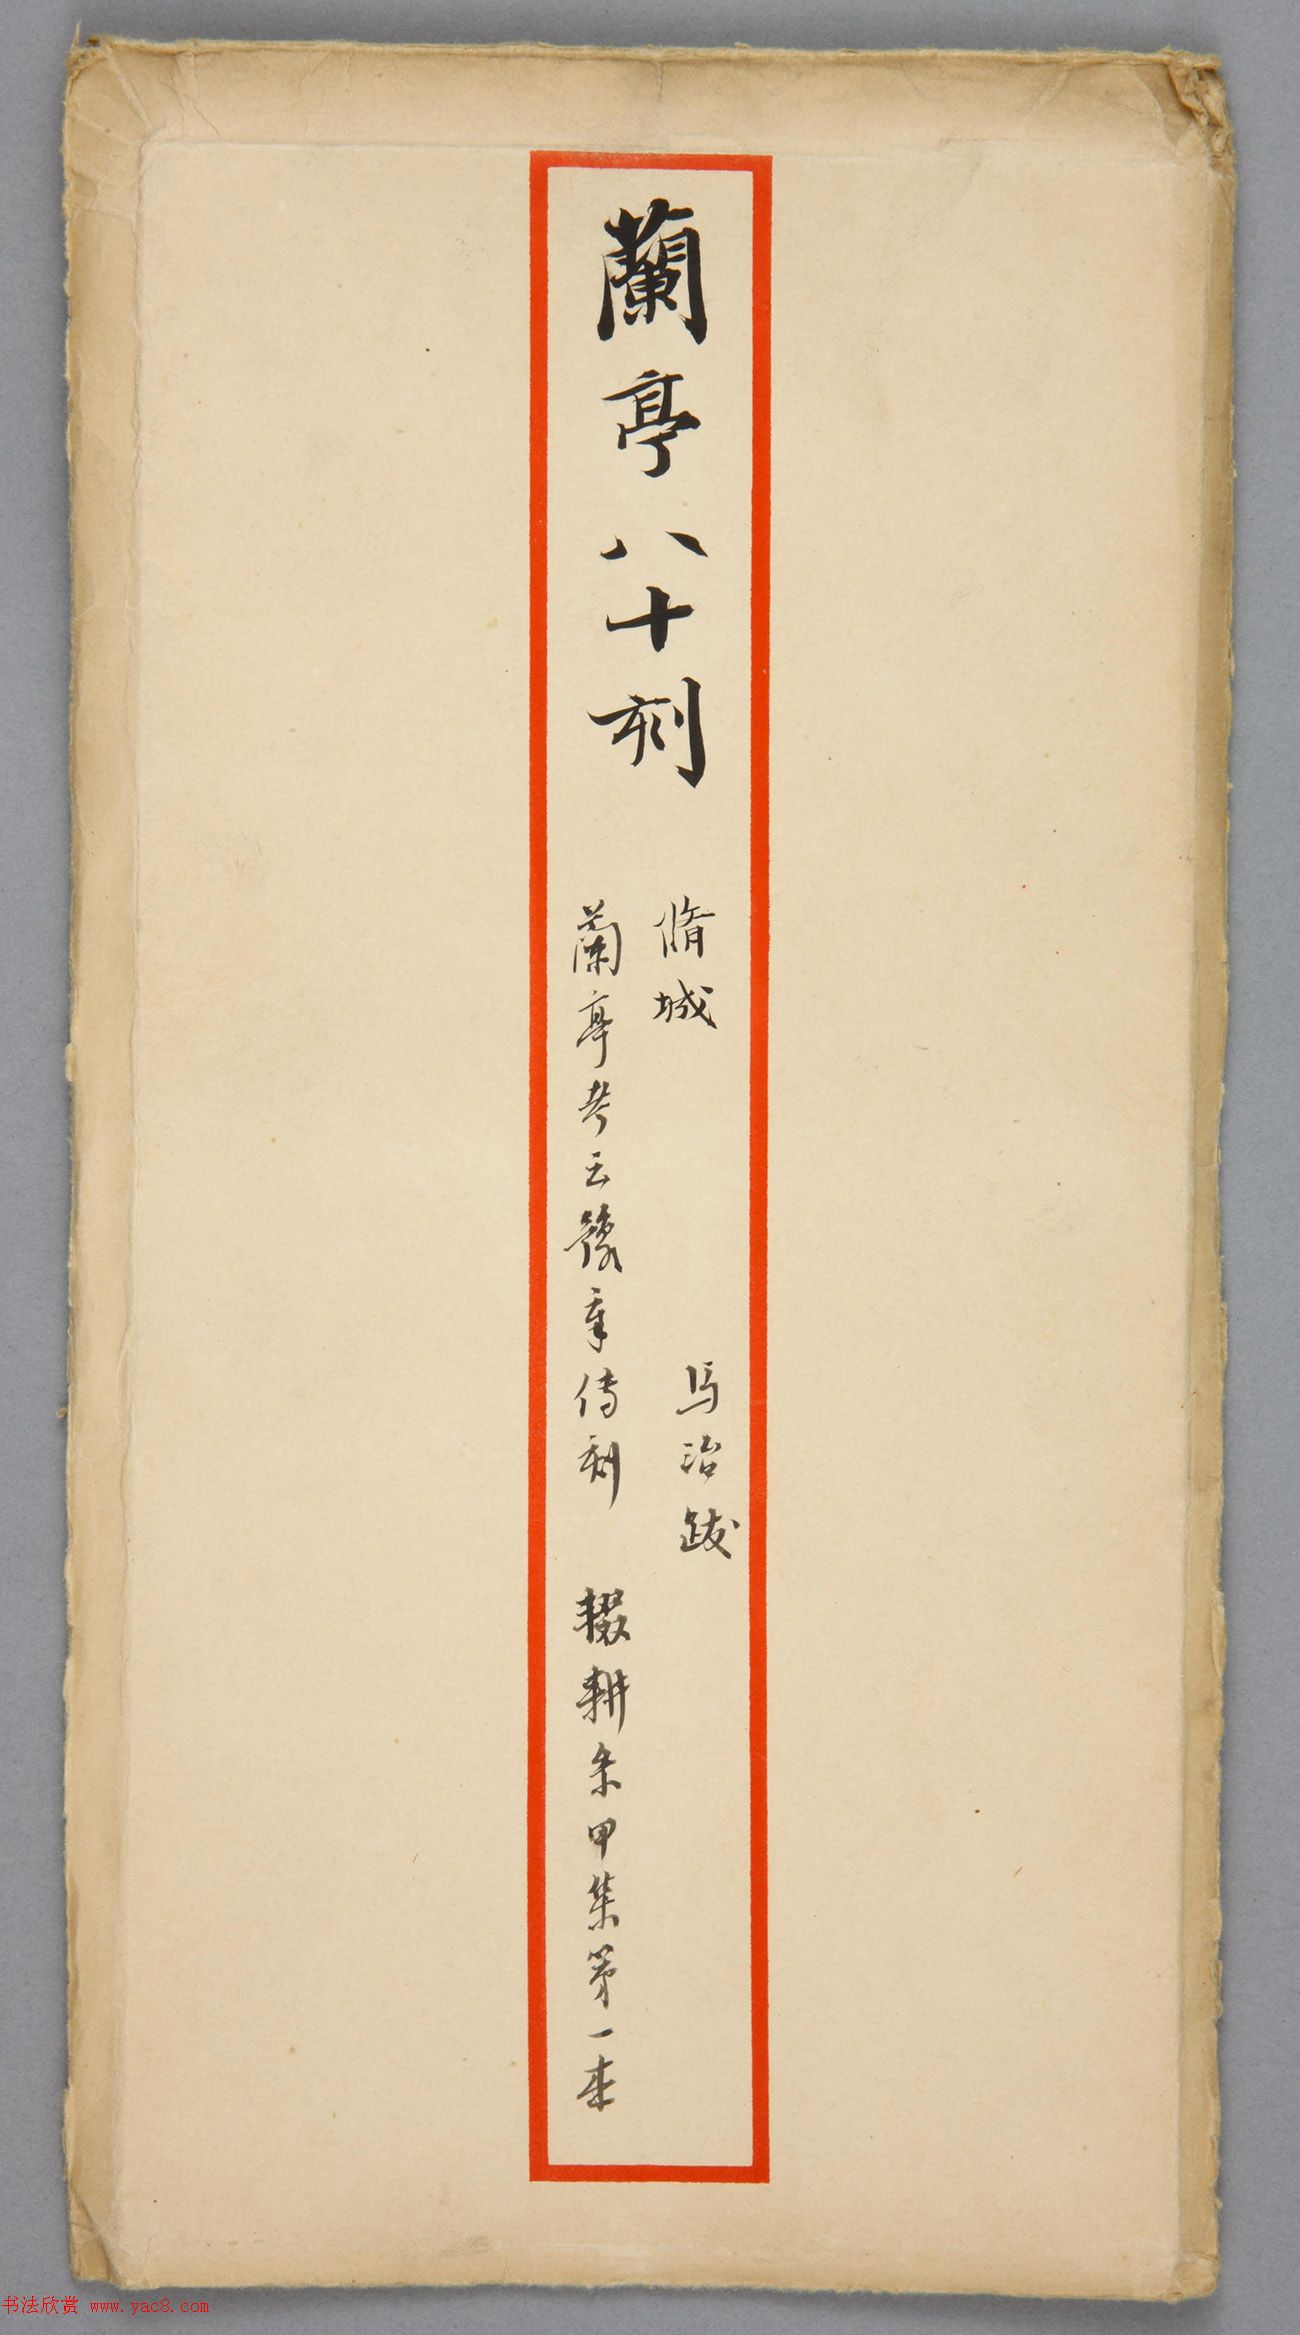 蘭亭八十刻
脩城 馬治跋
蘭亭考云豫章傳刻 輟耕錄甲集第一本
书法欣赏 www.yac8.com